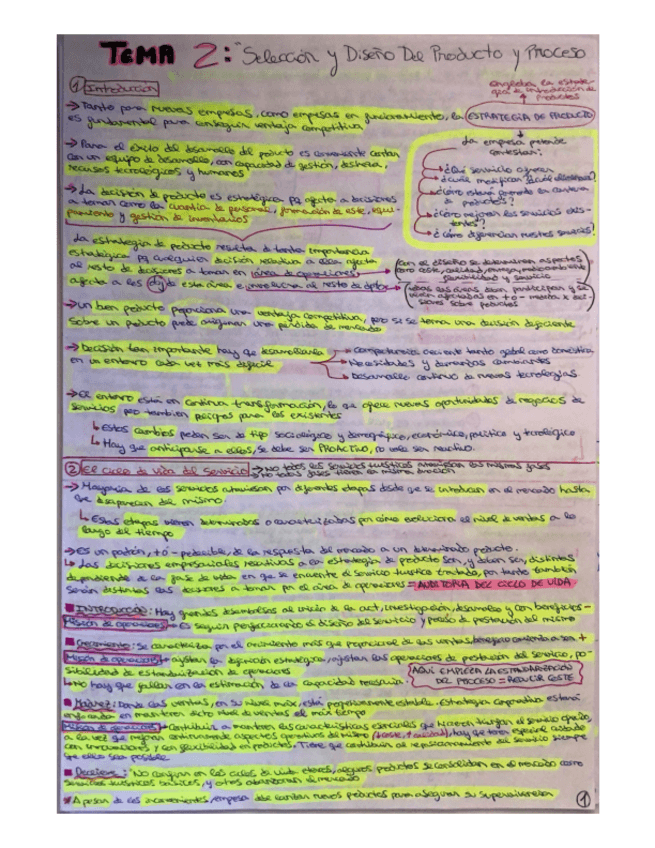 TEMA 2: "Selección y Diseño Del Producto y Proceso
① Introducción
engloba la estrate-
gia de introducción de
productos
→ Tanto para nuevas empresas, como empresas en funcionamiento, la ESTRATEGIA DE PRODUCTO
es fundamental para conseguir ventaja competitiva.
→ Para el éxito del desarrollo del producto es conveniente contar
con un equipo de desarrollo, con capacidad de gestión, destreza,
recursos tecnológicos y humanos
La empresa pretende
contestar:
¿Qué servicio ofrecer
¿Cómo mejoran los servicios exis-
tentes?
¿Cómo diferencian nuestros servicios?
→ La decisión de producto es estratégica pq afecta a decisiones
a tomar como la cuantía de personal, formación de este, equi-
pamiento y gestión de inventarios
La estrategia de producto resulta de tanta importancia
estratégica pq cualquier decisión relativa a ella afecta
al resto de decisiones a tomar en área de operaciones
afecta a los obj de esta área e involucra al resto de dptos
Con el diseño se determinan aspectos
como coste, calidad,
fiabilidad y servicio
→ Un buen producto proporciona una ventaja competitiva, pero si se toma una decisión deficiente
sobre un producto puede originar una pérdida de mercado
→ Decisión tan importante hay que desarrollarla
en un entorno cada vez más difícil
→ Competencia creciente tanto global como doméstica
→ Necesidades y demandas cambiantes
→ Desarrollo continuo de nuevas tecnologías
→ El entorno está en continua transformación, lo que ofrece nuevas oportunidades de negocios de
servicios pero también peligros para los existentes
↳ Estos cambios pueden ser de tipo sociológico y demográfico, económico, político y tecnológico
↳ Hay que anticiparse a ellos, se debe ser PROACTIVO, no vale ser reactivo.
② El ciclo de vida del servicio → No todos los servicios turísticos atraviesan las mismas fases
no todas fases tienen la misma duración
→ Mayoría de los servicios atraviesan por diferentes etapas desde que se introducen en el mercado hasta
que desaparecen del mismo
↳ Estas etapas vienen determinadas o caracterizadas por cómo evoluciona el nivel de ventas a lo
largo del tiempo
→ Es un patrón, +o- predecible, de la respuesta del mercado a un determinado producto.
↳ Las decisiones empresariales relativas a la estrategia de producto son, y deben ser, distintas
dependiendo de la fase de vida en que se encuentre el servicio turístico tratado, por tanto también
serán distintas las decisiones a tomar por el área de operaciones = AUDITORIA DEL CICLO DE VIDA
■ INTRODUCCIÓN: Hay grandes desembolsos al inicio de la act, investigación, desarrollo y con beneficios -
Misión de operaciones → Es seguir perfeccionando el diseño del servicio y proceso de prestación del mismo
■ Crecimiento: Se caracteriza por el crecimiento más que proporcional de las ventas, beneficio comienza a ser +
Misión de operaciones → ajustan la definición estratégica, ajustan las operaciones de prestación del servicio, po-
sibilidad de estandarización de operaciones
↳ No hay que fallar en la estimación de la capacidad necesaria.
AQUI EMPIEZA LA ESTANDARIZACIÓN
DEL PROCESO = REDUCIR COSTE
■ Madurez: Donde las ventas, en su nivel máx, está prácticamente estable. Estrategia corporativa estará
enfocada en mantener dicho nivel de ventas el máx tiempo
Misión de servicios → Contribuir a mantener las características esenciales que hicieron triunfar el servicio
a la vez que mejoran continuamente aspectos operativos del mismo (coste, calidad), hay que tener especial cuidado
con innovaciones y con flexibilidad en productos. Tiene que contribuir al reposicionamiento del servicio siempre
que ello sea posible
■ Declive: No confiar en los ciclos de vida eternos, algunos productos se consolidan en el mercado como
servicios turísticos y otros abandonan el mercado
* A pesar de los inconvenientes, empresa debe lanzar nuevos productos para asegurar su supervivencia
①